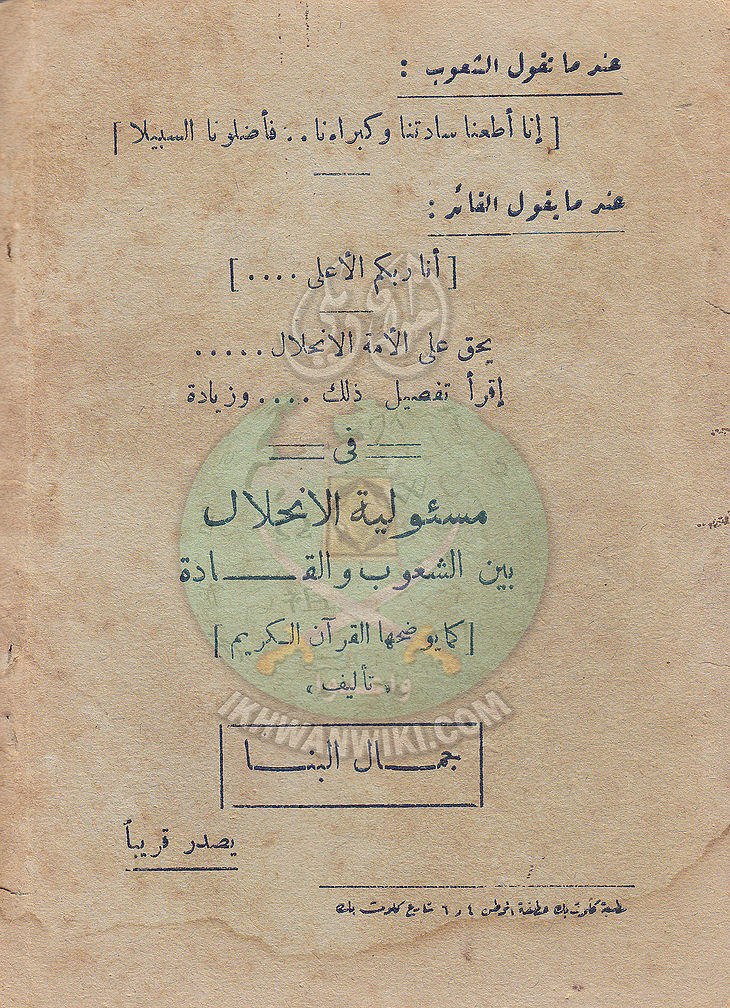 عند ما تقول الشعوب :
[ إنا أطعنا سادتنا وكبراءنا .. فأضلونا السبيلا ]
عند ما يقول القائد :
[ أنا ربكم الأعلى .... ]
يحق على الأمة الانحلال .....
إقرأ تفصيل ذلك .... وزيادة
فى
مسئولية الانحلال
بين الشعوب والقـــادة
[ كما يوضحها القرآن الكريم ]
« تأليف »
IKHWANWIKI.COM
جمـــال البنـــا
يصدر قريباً
مطبعة كلوت بك عطفة ٤ و ٦ شارع كلوت بك